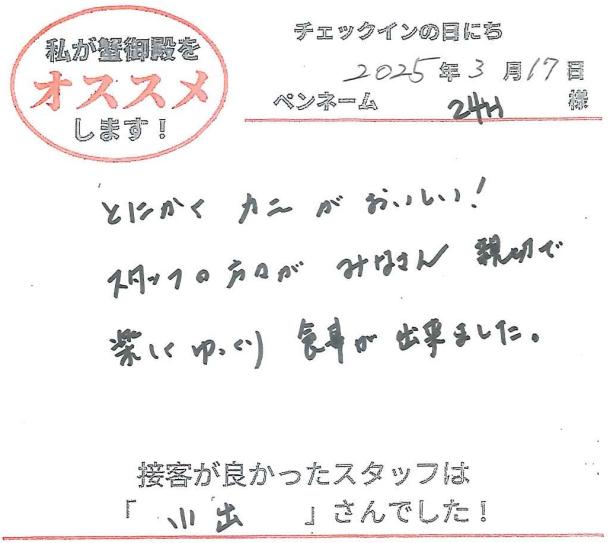 私が蟹御殿を
オススメ
します！
チェックインの日にち
2025年3月17日
ペンネーム 24H 様
とにかく カニ が おいしい！
スタッフの方々が みなさん 親切で
楽しく ゆっくり 食事が 出来ました。
接客が良かったスタッフは
「小出」さんでした！